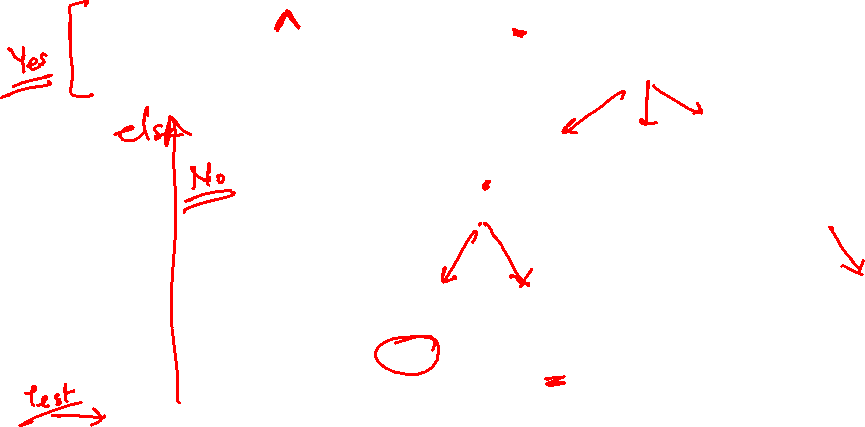 Yes
else
No
Test